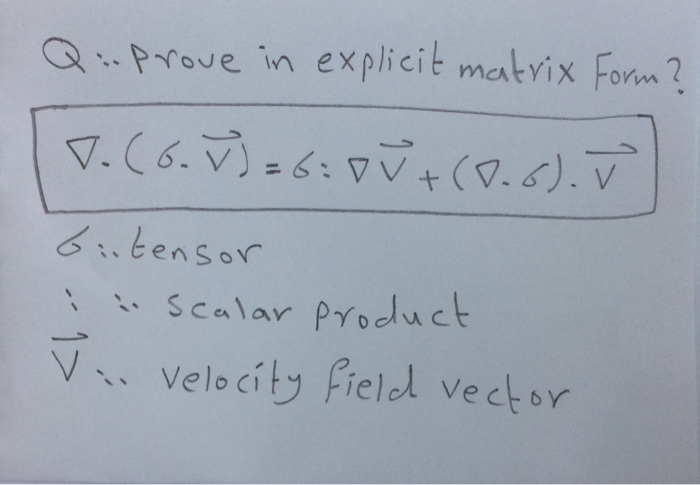 Q:. Prove in explicit matrix Form?
∇.(σ.V⃗) = σ:∇V⃗ + (∇.σ).V⃗
σ:. tensor
: :. scalar product
V⃗ :. velocity field vector